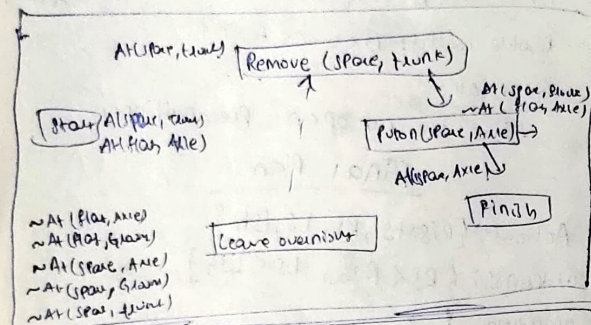 At(spare, trunk)
Remove (spare, trunk)
Start
At(spare, trunk)
At(flat, Axle)
At(spare, Ground)
~At(flat, Axle)
Puton(spare, Axle)
At(spare, Axle)
Finish
~At(flat, Axle)
~At(flat, Ground)
~At(spare, Axle)
~At(spare, Ground)
~At(spare, trunk)
Leave overnight